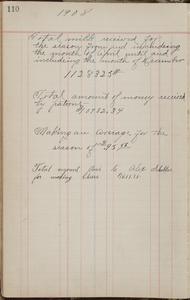 110
1908
Total milk received for
the season from and including
the month of April until and
including the month of December
1128325#
Total amount of money received
by patrons
$10732.34
Making an average for the
season of 95
Total amount paid to Alex
for making cheese